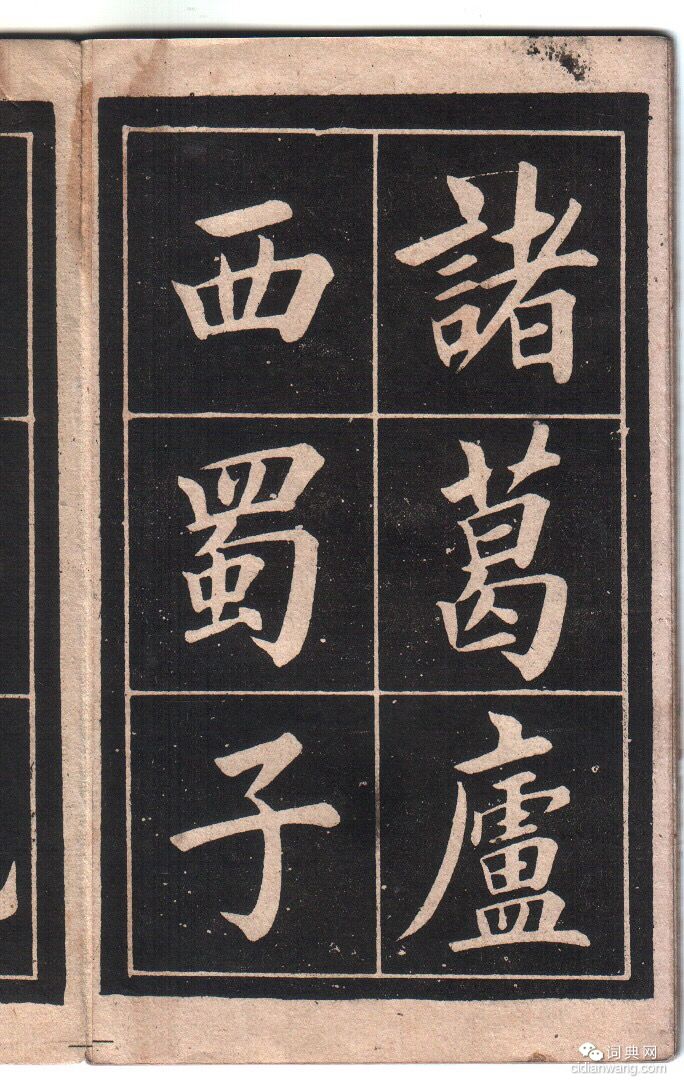 諸葛廬
西蜀子
词典网
cidianwang.com